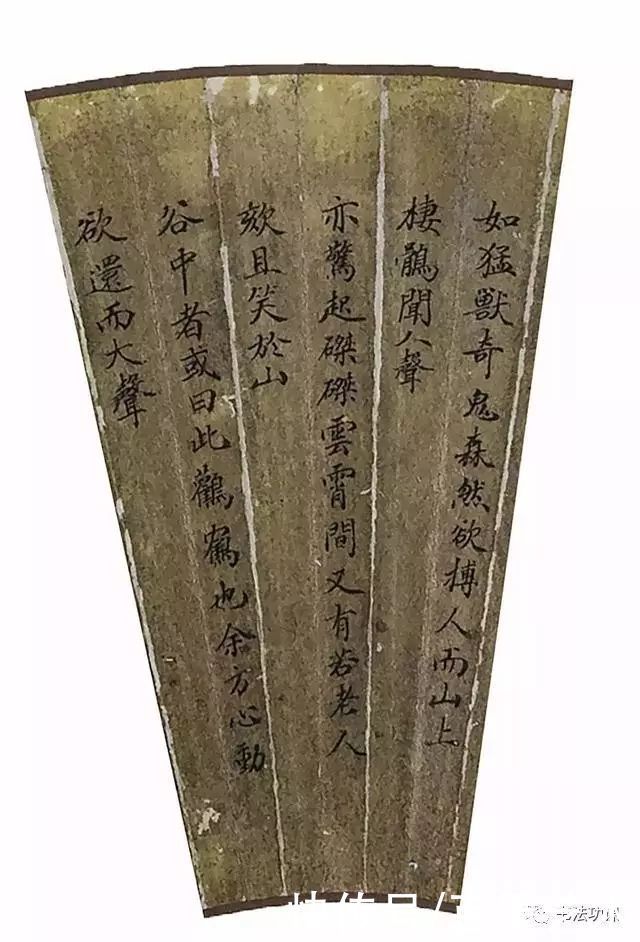 如猛獸奇鬼森然欲搏人而山上
棲鶻聞人聲
亦驚起磔磔雲霄間又有若老人
欬且笑於山
谷中者或曰此鸛寉也余方心動
欲還而大聲
书法功课